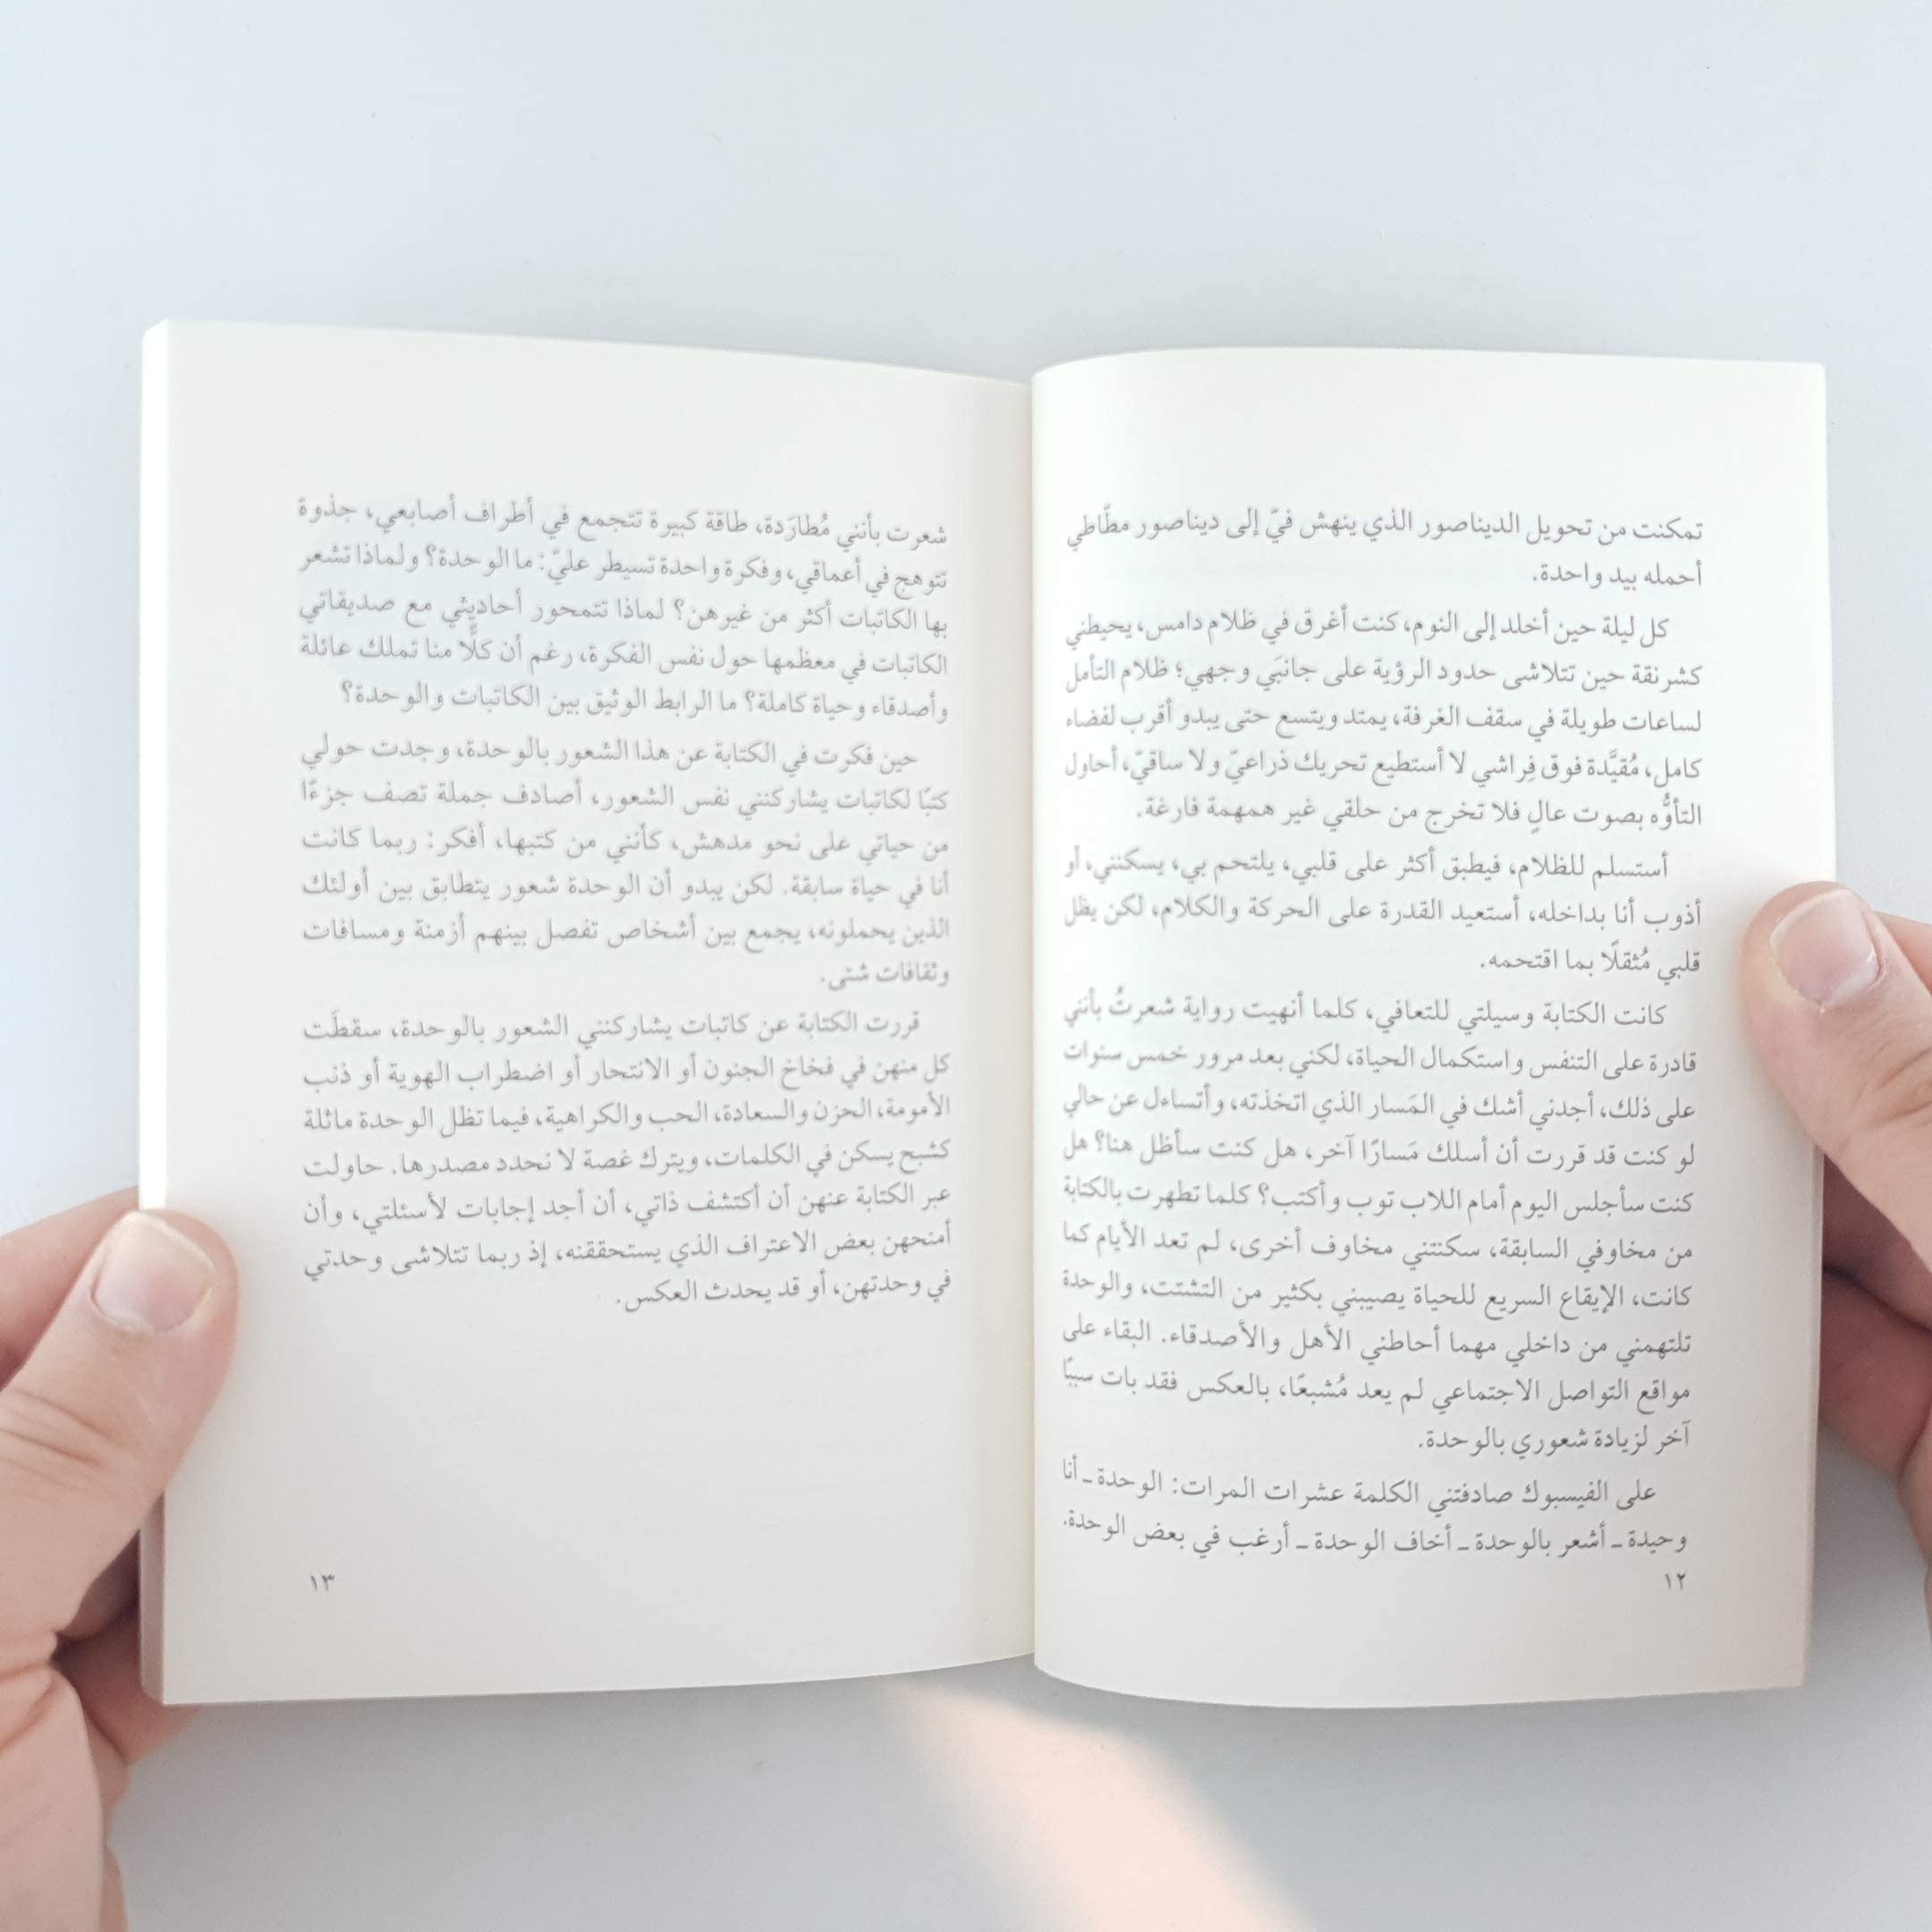 تمكنت من تحويل الديناصور الذي ينهش فيّ إلى ديناصور مطّاطي
أحمله بيد واحدة.
كل ليلة حين أخلد إلى النوم، كنت أغرق في ظلام دامس، يحيطني
كشرنقة حين تتلاشى حدود الرؤية على جانبَي وجهي؛ ظلام التأمل
لساعات طويلة في سقف الغرفة، يمتد ويتسع حتى يبدو أقرب لفضاء
كامل، مُقيَّدة فوق فِراشي لا أستطيع تحريك ذراعيّ ولا ساقيّ، أحاول
التأوُّه بصوت عالٍ فلا تخرج من حلقي غير همهمة فارغة.
أستسلم للظلام، فيطبق أكثر على قلبي، يلتحم بي، يسكنني، أو
أذوب أنا بداخله، أستعيد القدرة على الحركة والكلام، لكن يظل
قلبي مُثقلًا بما اقتحمه.
كانت الكتابة وسيلتي للتعافي، كلما أنهيت رواية شعرتُ بأنني
قادرة على التنفس واستكمال الحياة، لكني بعد مرور خمس سنوات
على ذلك، أجدني أشك في المَسار الذي اتخذته، وأتساءل عن حالي
لو كنت قد قررت أن أسلك مَسارًا آخر، هل كنت سأظل هنا؟ هل
كنت سأجلس اليوم أمام اللاب توب وأكتب؟ كلما تطهرت بالكتابة
من مخاوفي السابقة، سكنتني مخاوف أخرى، لم تعد الأيام كما
كانت، الإيقاع السريع للحياة يصيبني بكثير من التشتت، والوحدة
تلتهمني من داخلي مهما أحاطني الأهل والأصدقاء. البقاء على
مواقع التواصل الاجتماعي لم يعد مُشبعًا، بالعكس فقد بات سببًا
آخر لزيادة شعوري بالوحدة.
على الفيسبوك صادفتني الكلمة عشرات المرات: الوحدة ـ أنا
وحيدة ـ أشعر بالوحدة ـ أخاف الوحدة ـ أرغب في بعض الوحدة.
١٢
شعرت بأنني مُطارَدة، طاقة كبيرة تتجمع في أطراف أصابعي، جذوة
تتوهج في أعماقي، وفكرة واحدة تسيطر عليّ: ما الوحدة؟ ولماذا تشعر
بها الكاتبات أكثر من غيرهن؟ لماذا تتمحور أحاديثي مع صديقاتي
الكاتبات في معظمها حول نفس الفكرة، رغم أن كلًّا منا تملك عائلة
وأصدقاء وحياة كاملة؟ ما الرابط الوثيق بين الكاتبات والوحدة؟
حين فكرت في الكتابة عن هذا الشعور بالوحدة، وجدت حولي
كتبًا لكاتبات يشاركنني نفس الشعور، أصادف جملة تصف جزءًا
من حياتي على نحو مدهش، كأنني من كتبها، أفكر: ربما كانت
أنا في حياة سابقة. لكن يبدو أن الوحدة شعور يتطابق بين أولئك
الذين يحملونه، يجمع بين أشخاص تفصل بينهم أزمنة ومسافات
وثقافات شتى.
قررت الكتابة عن كاتبات يشاركنني الشعور بالوحدة، سقطَت
كل منهن في فخاخ الجنون أو الانتحار أو اضطراب الهوية أو ذنب
الأمومة، الحزن والسعادة، الحب والكراهية، فيما تظل الوحدة ماثلة
كشبح يسكن في الكلمات، ويترك غصة لا نحدد مصدرها. حاولت
عبر الكتابة عنهن أن أكتشف ذاتي، أن أجد إجابات لأسئلتي، وأن
أمنحهن بعض الاعتراف الذي يستحققنه، إذ ربما تتلاشى وحدتي
في وحدتهن، أو قد يحدث العكس.
١٣